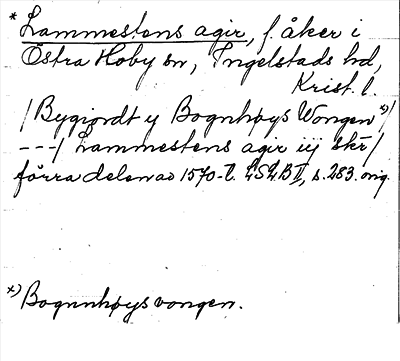 * Lammestens agir, f. åker i
Östra Hoby sn, Ingelstads hd,
Krist. l.
/Bygiordt y Bognhøys Wongen x)/
---/ Lammestens agir iij skr/
förra delen av 1570-t. LSLB II, s. 283. orig.
x) Bognnhøys vongen.